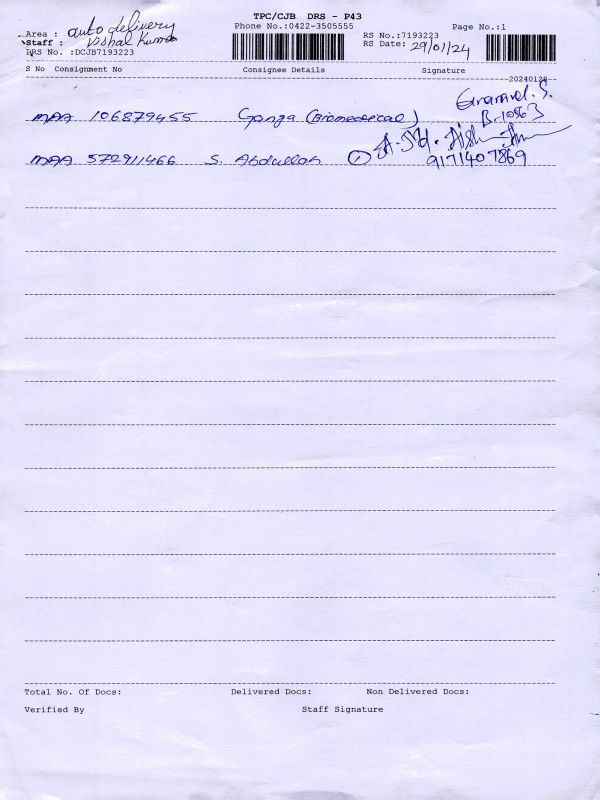 TPC/CJB DRS - P43
Area : auto delivery
Phone No.:0422-3505555
Page No.:1
Staff : Vishal Kumar
RS No.:7193223
DRS No. :DCJB7193223
RS Date: 29/01/24
S No Consignment No Consignee Details Signature
20240129
MAA 106879455 Ganga (Biomedical)
B-1063
MAA 572911466 S. Abdullah 1
9171407869
Total No. Of Docs: Delivered Docs: Non Delivered Docs:
Verified By Staff Signature